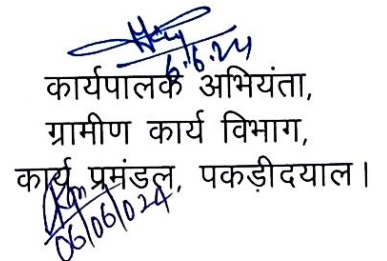 6.6.24
कार्यपालक अभियंता,
ग्रामीण कार्य विभाग,
कार्य प्रमंडल, पकड़ीदयाल।
06/06/024